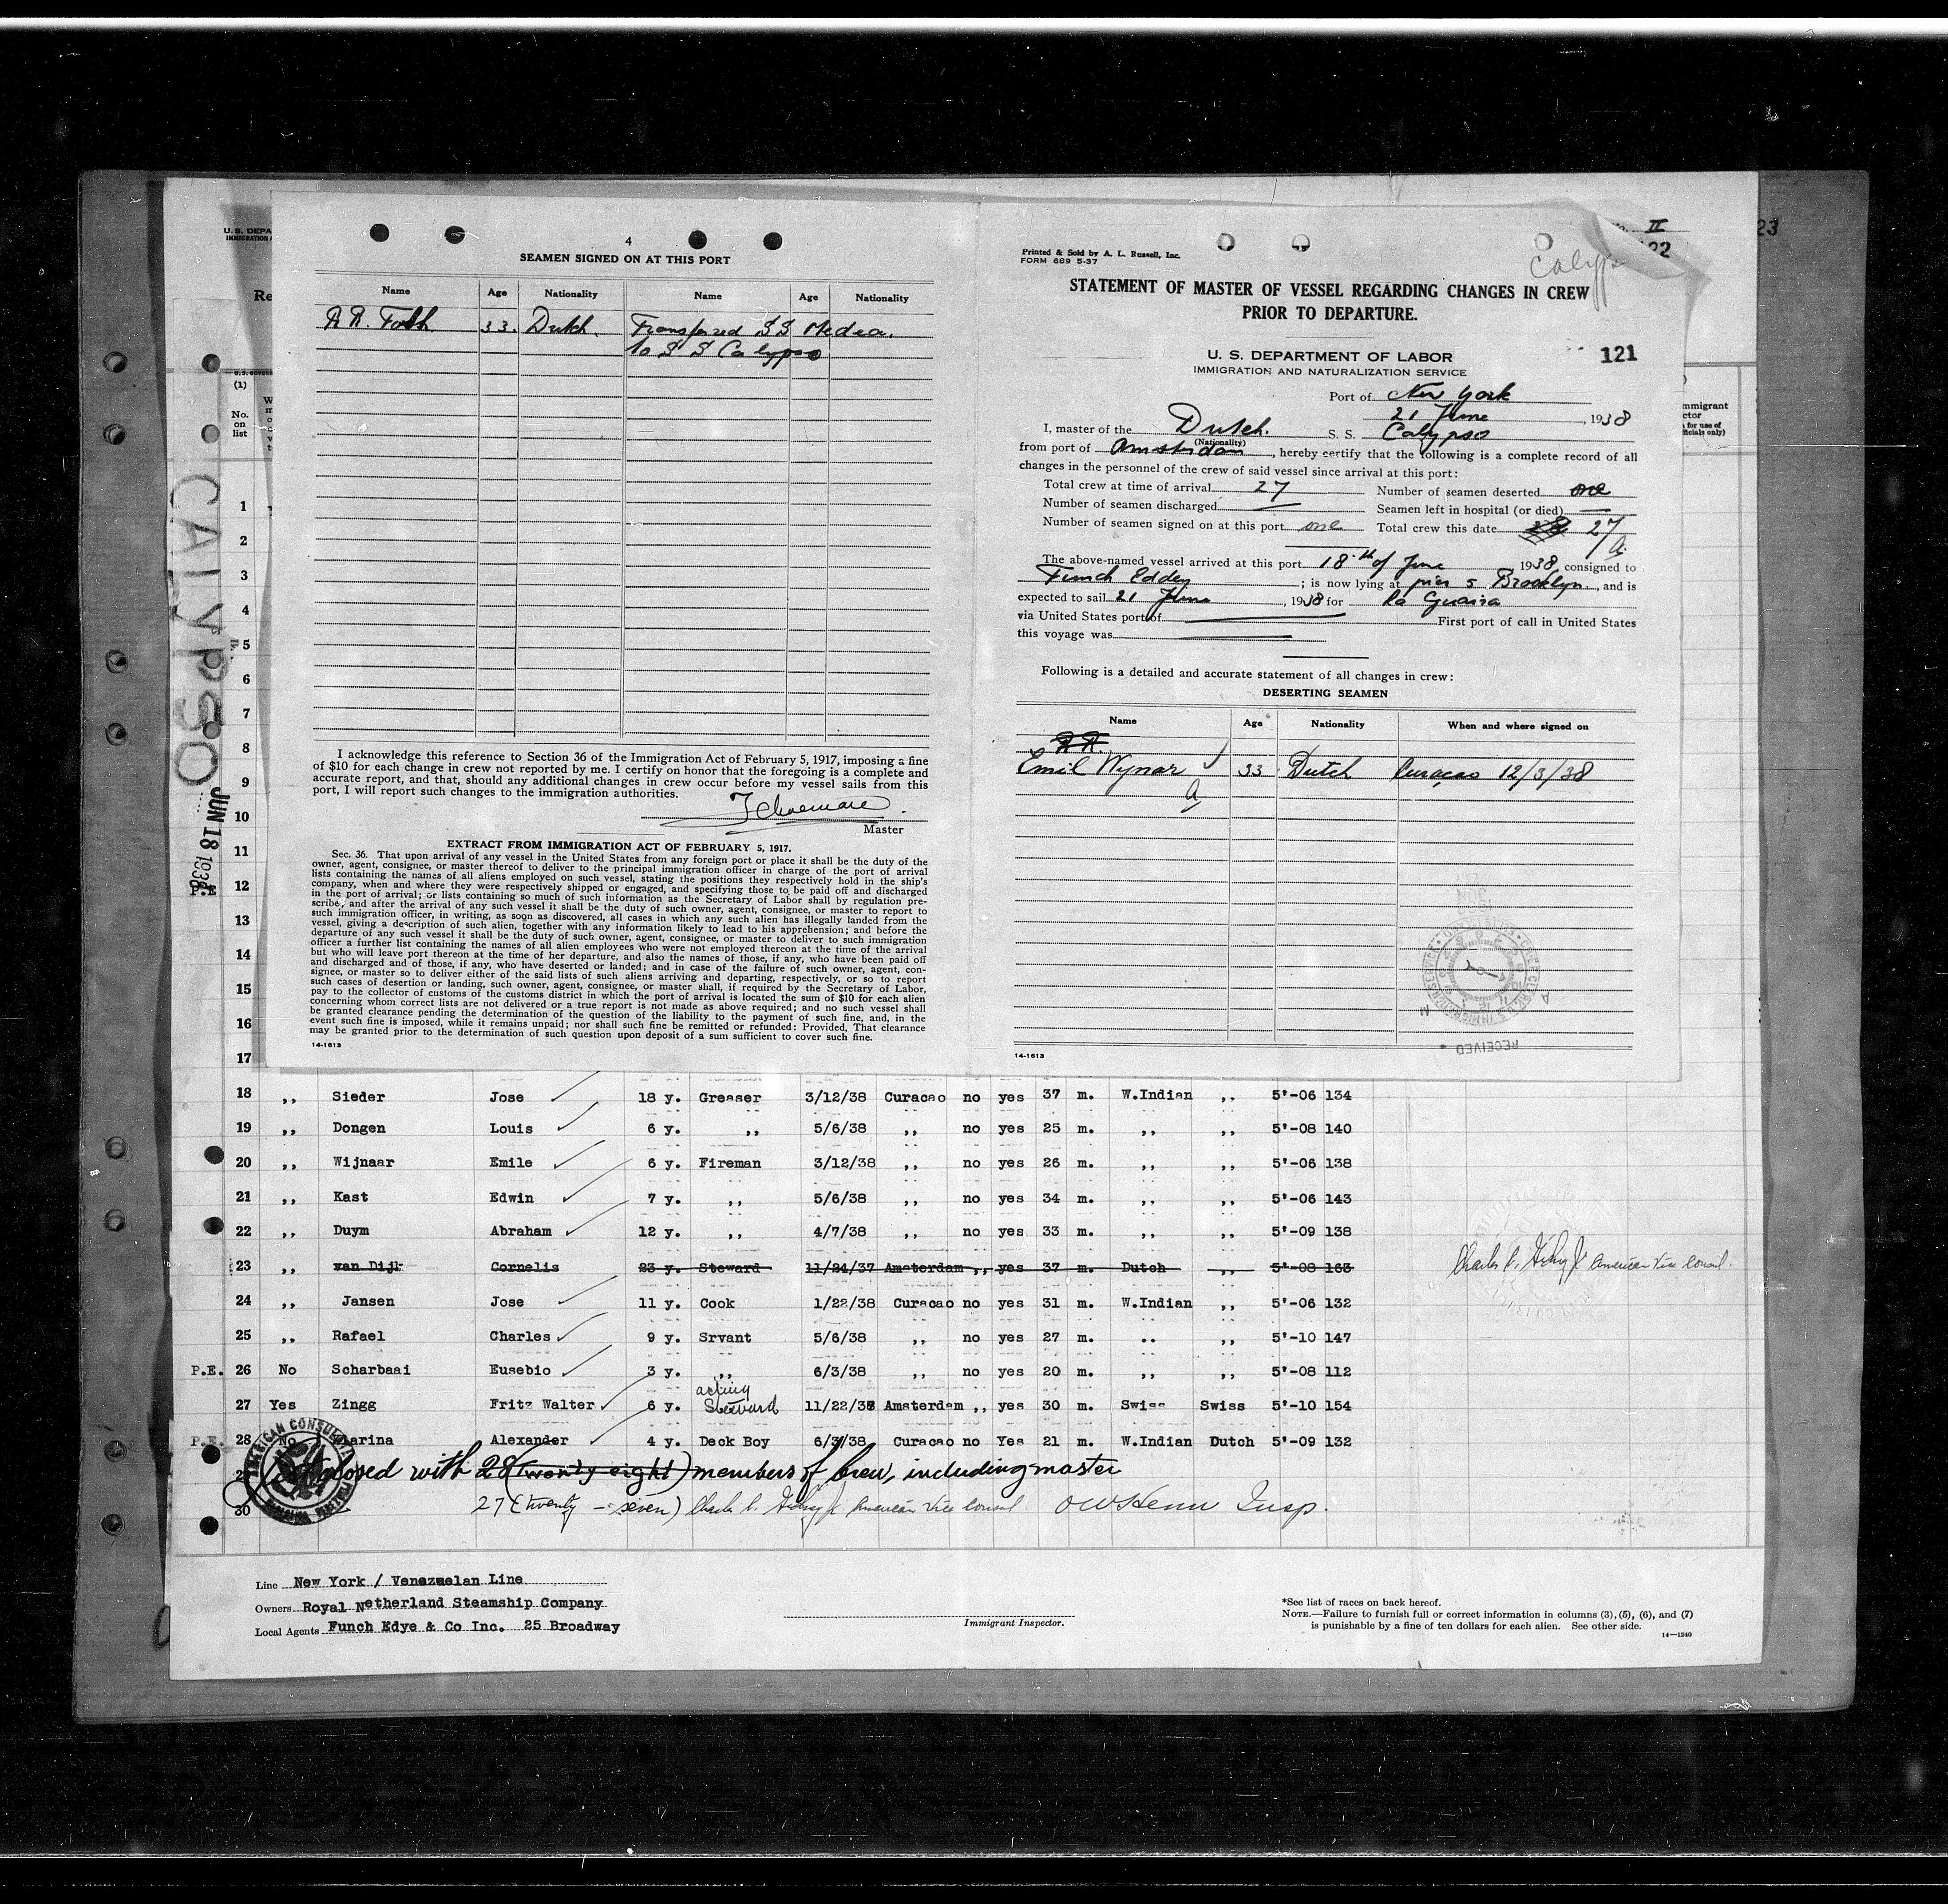 4
SEAMEN SIGNED ON AT THIS PORT
Name Age Nationality Name Age Nationality
33. Dutch. Transfered SS Medea.
to S S Calypso
I acknowledge this reference to Section 36 of the Immigration Act of February 5, 1917, imposing a fine
of $10 for each change in crew not reported by me. I certify on honor that the foregoing is a complete and
accurate report, and that, should any additional changes in crew occur before my vessel sails from this
port, I will report such changes to the immigration authorities.
Master
EXTRACT FROM IMMIGRATION ACT OF FEBRUARY 5, 1917.
Sec. 36. That upon arrival of any vessel in the United States from any foreign port or place it shall be the duty of the
owner, agent, consignee, or master thereof to deliver to the principal immigration officer in charge of the port of arrival
lists containing the names of all aliens employed on such vessel, stating the positions they respectively hold in the ship's
company, when and where they were respectively shipped or engaged, and specifying those to be paid off and discharged
in the port of arrival; or lists containing so much of such information as the Secretary of Labor shall by regulation pre-
scribe; and after the arrival of any such vessel it shall be the duty of such owner, agent, consignee, or master to report to
such immigration officer, in writing, as soon as discovered, all cases in which any such alien has illegally landed from the
vessel, giving a description of such alien, together with any information likely to lead to his apprehension; and before the
departure of any such vessel it shall be the duty of such owner, agent, consignee, or master to deliver to such immigration
officer a further list containing the names of all alien employees who were not employed thereon at the time of the arrival
but who will leave port thereon at the time of her departure, and also the names of those, if any, who have been paid off
and discharged and of those, if any, who have deserted or landed; and in case of the failure of such owner, agent, con-
signee, or master so to deliver either of the said lists of such aliens arriving and departing, respectively, or so to report
such cases of desertion or landing, such owner, agent, consignee, or master shall, if required by the Secretary of Labor,
pay to the collector of customs of the customs district in which the port of arrival is located the sum of $10 for each alien
concerning whom correct lists are not delivered or a true report is not made as above required; and no such vessel shall
be granted clearance pending the determination of the question of the liability to the payment of such fine, and, in the
event such fine is imposed, while it remains unpaid; nor shall such fine be remitted or refunded: Provided, That clearance
may be granted prior to the determination of such question upon deposit of a sum sufficient to cover such fine.
14-1613
Printed & Sold by A. L. Russell, Inc.
FORM 689 5-37
STATEMENT OF MASTER OF VESSEL REGARDING CHANGES IN CREW
PRIOR TO DEPARTURE.
U. S. DEPARTMENT OF LABOR
IMMIGRATION AND NATURALIZATION SERVICE
121
Port of New York
21 June, 1938
I, master of the Dutch. S. S. Calypso
(Nationality)
from port of Amsterdam, hereby certify that the following is a complete record of all
changes in the personnel of the crew of said vessel since arrival at this port:
Total crew at time of arrival 27 Number of seamen deserted one
Number of seamen discharged Seamen left in hospital (or died)
Number of seamen signed on at this port one Total crew this date 27
The above-named vessel arrived at this port 18th of June 1938, consigned to
Funch Eddey; is now lying at pier 5 Brooklyn, and is
expected to sail 21 June, 1938 for La Guaira
via United States port of First port of call in United States
this voyage was
Following is a detailed and accurate statement of all changes in crew:
DESERTING SEAMEN
Name Age Nationality When and where signed on
Emil Wynar 33 Dutch Curaçao 12/3/38
RECEIVED
14-1613
U. S. DEPA
(1)
No.
on
list
CALYPSO
JUN 18 1938
23
1
2
3
4
5
6
7
8
9
10
11
12
13
14
15
16
17
18 ,, Sieder Jose 18 y. Greaser 3/12/38 Curacao no yes 37 m. W.Indian ,, 5'-06 134
19 ,, Dongen Louis 6 y. ,, 5/6/38 ,, no yes 25 m. ,, ,, 5'-08 140
20 ,, Wijnaar Emile 6 y. Fireman 3/12/38 ,, no yes 26 m. ,, ,, 5'-06 138
21 ,, Kast Edwin 7 y. ,, 5/6/38 ,, no yes 34 m. ,, ,, 5'-06 143
22 ,, Duym Abraham 12 y. ,, 4/7/38 ,, no yes 33 m. ,, ,, 5'-09 138
23 ,, van Dijk Cornelis 23 y. Steward 11/24/37 Amsterdam ,, yes 37 m. Dutch ,, 5'-08 163 American Vice Consul.
24 ,, Jansen Jose 11 y. Cook 1/22/38 Curacao no yes 31 m. W.Indian ,, 5'-06 132
25 ,, Rafael Charles 9 y. Srvant 5/6/38 ,, no yes 27 m. ,, ,, 5'-10 147
P.E. 26 No Scharbaai Eusebio 3 y. ,, 6/3/38 ,, no yes 20 m. ,, ,, 5'-08 112
27 Yes Zingg Fritz Walter 6 y. acting Steward 11/22/38 Amsterdam ,, yes 30 m. Swiss Swiss 5'-10 154
P.E. 28 No Marina Alexander 4 y. Deck Boy 6/3/38 Curacao no Yes 21 m. W.Indian Dutch 5'-09 132
Closed with 28 (twenty eight) members of Crew, including master
30 27 (twenty-seven) American Vice Consul Insp.
Line New York / Venezuelan Line
Owners Royal Netherland Steamship Company
Local Agents Funch Edye & Co Inc. 25 Broadway
Immigrant Inspector.
*See list of races on back hereof.
NOTE.—Failure to furnish full or correct information in columns (3), (5), (6), and (7)
is punishable by a fine of ten dollars for each alien. See other side.
14—1240